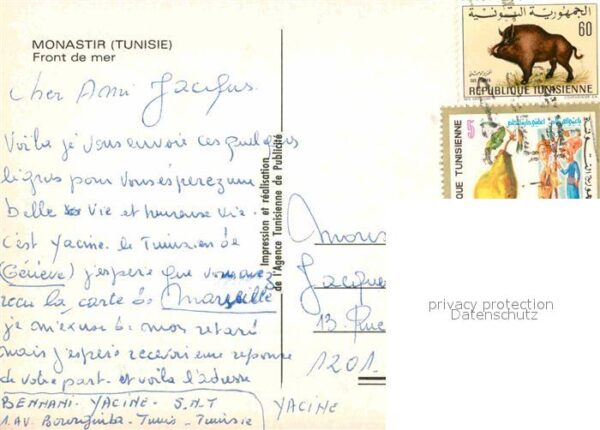 MONASTIR (TUNISIE)
Front de mer
Cher Ami Jacques.
Voila je vous envoie ces quelques
lignes pour vous espérez une
belle vie et heureuse vie.
C'est Yacine. le Tunisien de
(Génève) j'espère que vous avez
recu la carte de Marseille
je m'éxuse de mon retard
mais j'espère recevoir une reponse
de votre part. et voila l'adresse
BENNANI - YACINE - S.N.T
1. AV. Bourguiba - Tunis - Tunisie
YACINE
Impression et réalisation
de l'Agence Tunisienne de Publicité
الجمهورية التونسية
60
REPUBLIQUE TUNISIENNE
QUE TUNISIENNE
Jacques
13. Rue
1201.
privacy protection
Datenschutz